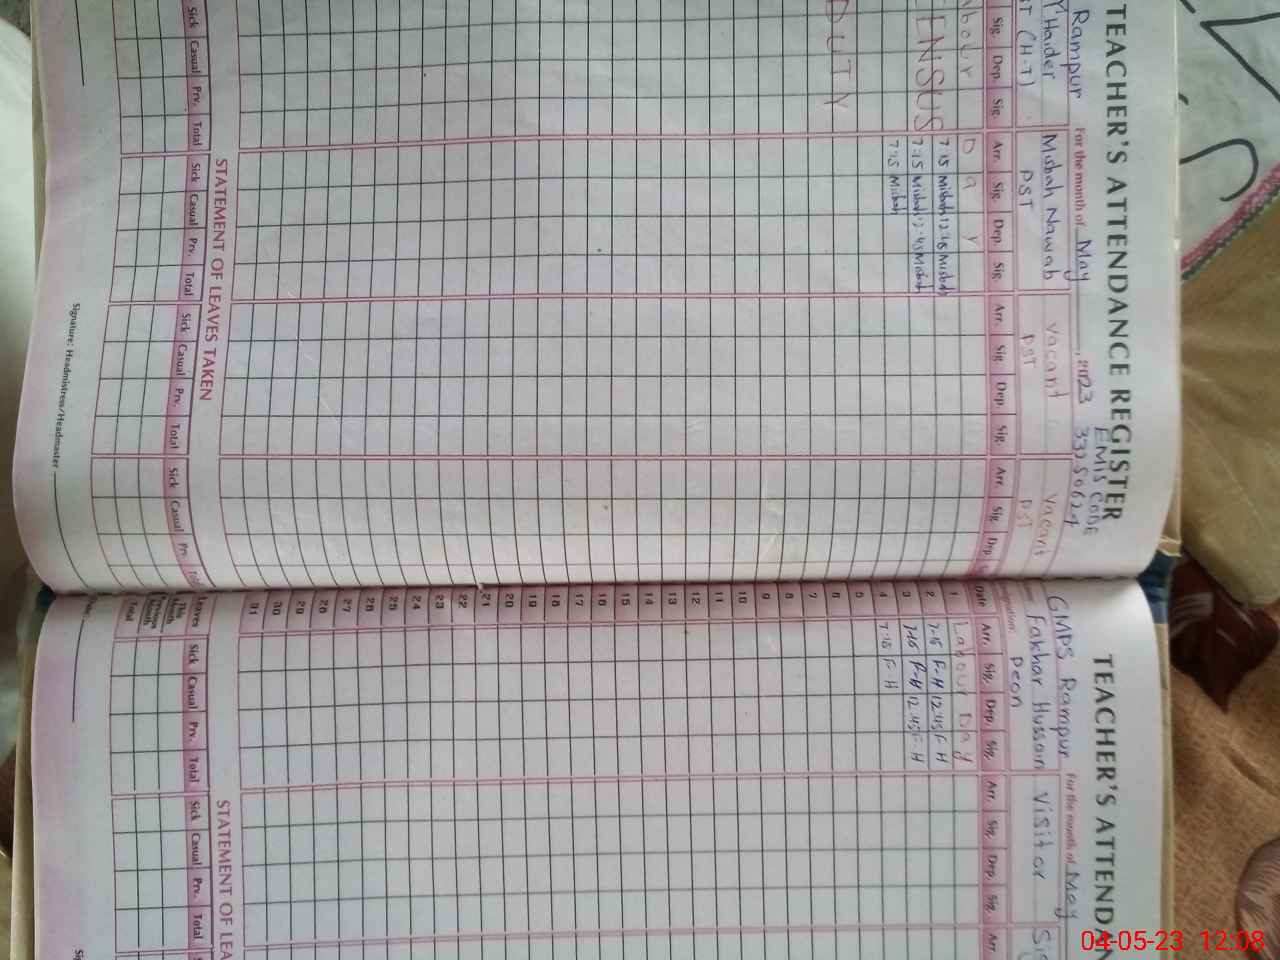 TEACHER'S ATTENDANCE REGISTER
EMIS CODE
Rampur For the month of May, 2023
Haider Misbah Nawab Vacant Vacant
(H.T) PST PST PST
Sig. Dep. Sig. Arr. Sig. Dep. Sig. Arr. Sig. Dep. Sig. Arr. Sig. Dep.
abour Day
ENSUS 7:15 Misbah 12:45 Misbah
7:15 Misbah 12:45 Misbah
7:15 Misbah
DUTY
STATEMENT OF LEAVES TAKEN
Sick Casual Prv. Total Sick Casual Prv. Total Sick Casual Prv. Total Sick Casual Prv.
Signature: Headmistress/Headmaster
TEACHER'S ATTENDA
GMPS Rampur For the month of May
Fakhar Hussain Visitor
Peon
Date Arr. Sig. Dep. Sig. Arr. Sig. Dep. Sig. Arr
1 Labour Day
2 7:15 F-H 12:45 F-H
3 7:15 F-H 12:45 F-H
4 7:15 F-H
5
6
7
8
9
10
11
12
13
14
15
16
17
18
19
20
21
22
23
24
25
26
27
28
29
30
31
STATEMENT OF LEA
Leaves Sick Casual Prv. Total Sick Casual Prv. Total
This Month
Previous Month
Total
04-05-23 12:08